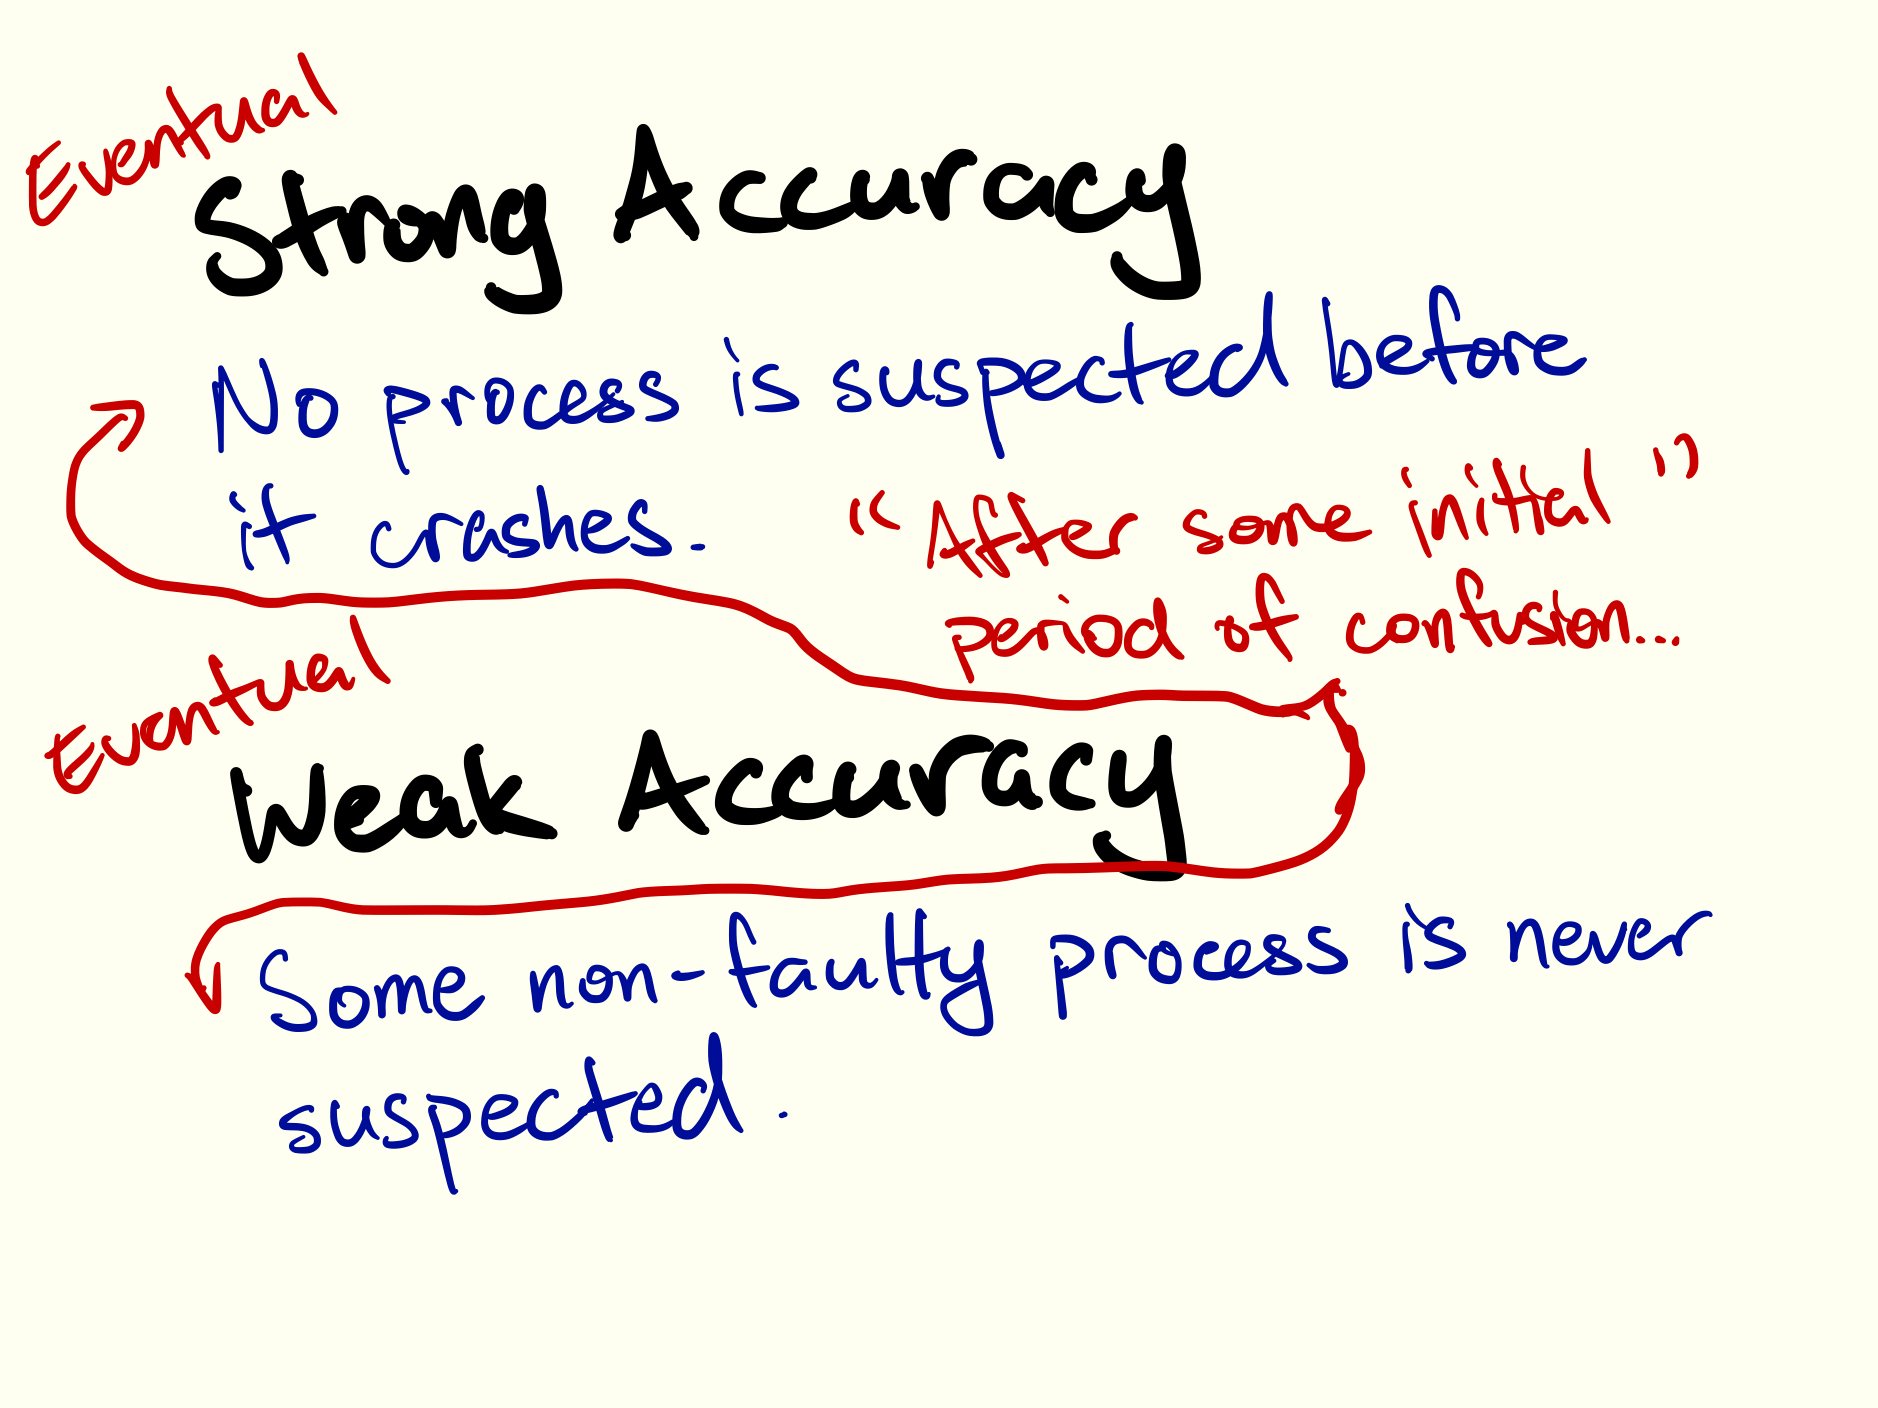 Eventual
Strong Accuracy
No process is suspected before
it crashes.
"After some initial"
period of confusion...
Eventual
Weak Accuracy
Some non-faulty process is never
suspected.